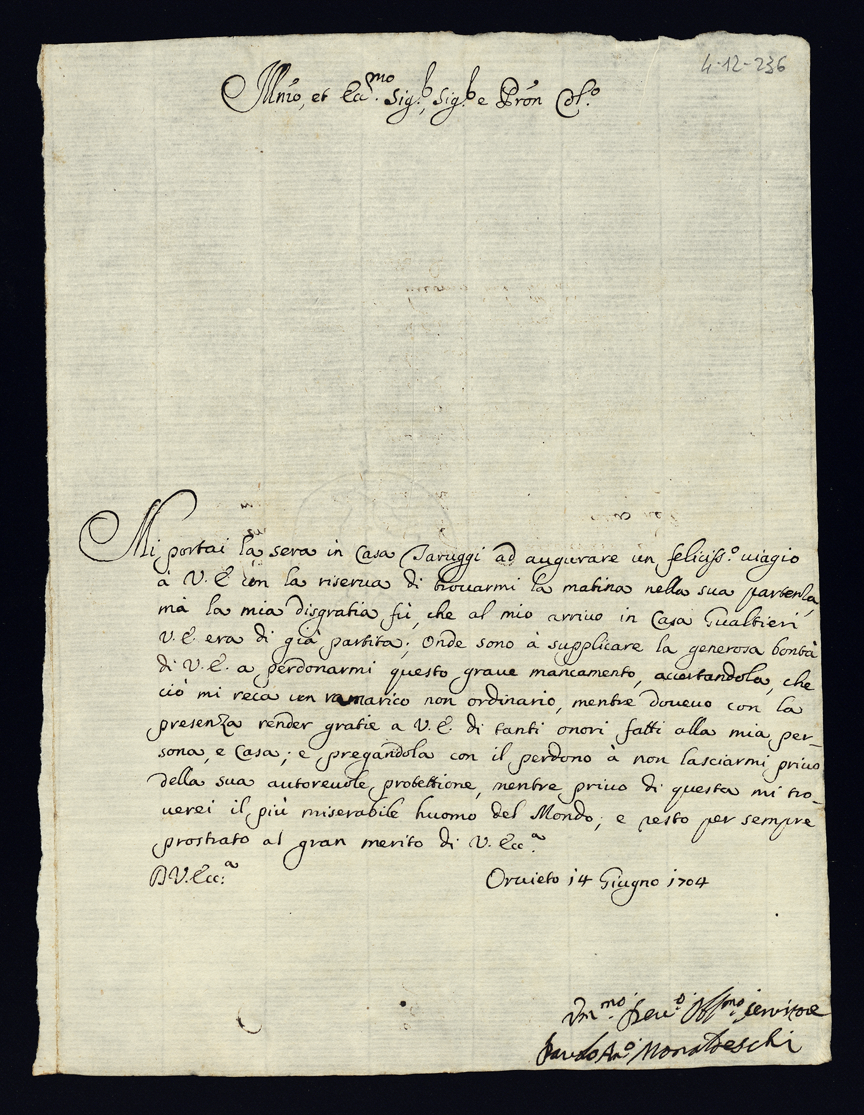 4-12-236
Illmo, et Ecc.mo Sig.r, Sig.r e Pron Col.o
Mi portai la sera in Casa Taruggi ad augurare un feliciss.o uiagio
à V. E. con la riserua di trouarmi la matina nella sua partenza,
mà la mia disgratia fù, che al mio arriuo in Casa Gualtieri
V. E. era di già partita; Onde sono à supplicare la generosa bontà
di V. E. a perdonarmi questo graue mancamento, accertandola, che
ciò mi reca un ramarico non ordinario, mentre doueuo con la
presenza render gratie a V. E. di tanti onori fatti alla mia per-
sona, e Casa; e pregandola con il perdono à non lasciarmi priuo
della sua autoreuole protettione, mentre priuo di questa mi tro-
uerei il più miserabile huomo del Mondo; e resto per sempre
prostrato al gran merito di V. Ecc.a
D V. Ecc.a Orvieto 14 Giugno 1704
Vm.mo Deu.o Obl.mo seruitore
Paulo An.o Monaldeschi